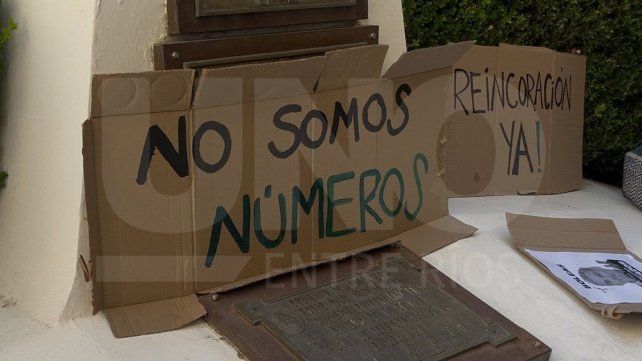 NO SOMOS
NÚMEROS
REINCORACIÓN
YA!
UNO
ENTRE RIOS